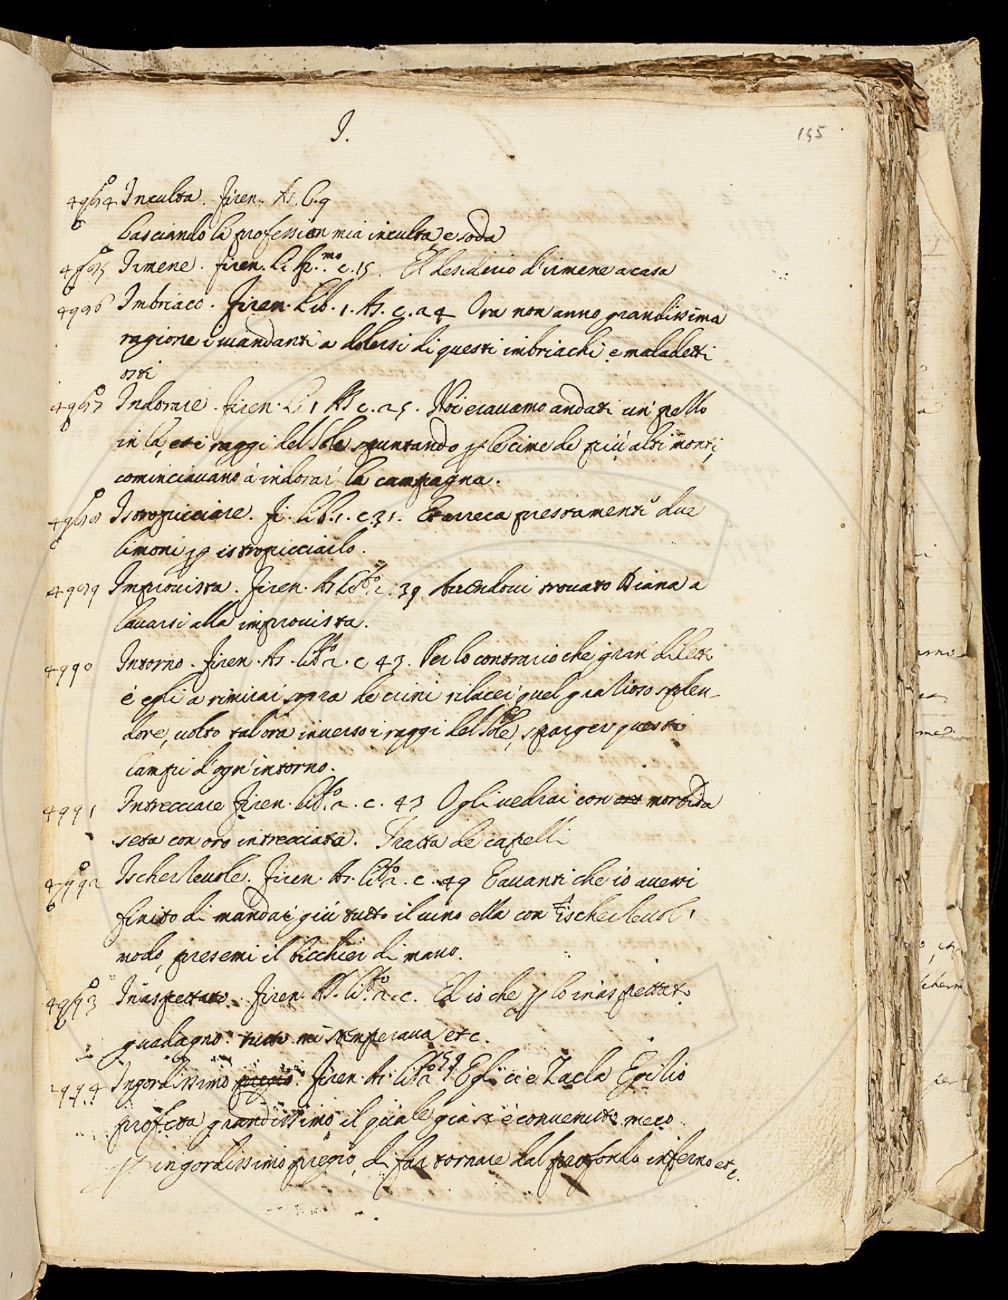 I.
155
4984 Inculta. Firen. As. l. 9
lasciando la profession mia inculta e soda
4985 Irmene. firen. li. pr.mo c. 15. El desiderio d'irmene a casa
4986 Imbriaco. Firen. Lib. 1. As. c. 24 Ora non anno grandissima
ragione i viandanti a dolersi di questi imbriachi e maladetti
osti
4987 Indorare. Firen. li 1 As c. 25. Noi eravamo andati un pezzo
in là, et i raggi del Sole spuntando p le cime de più alti monti
cominciavano a indorar la campagna.
4988 Istropicciare. Fi. lib. 1. c 31. Et arreca prestamente due
limoni p istropicciarlo.
4989 Improvista. Firen. As. lib.o 2. c. 39 Avendovi trovato Diana a
lavarsi alla improvista.
4990 Intorno. Firen. As. lib.o 2. c 43. Per lo contrario che gran diletto
è egli a rimirar sopra de crini rilucer quel gratioso splen-
dore, volto talora inverso i raggi del Sole, sparger questi
lampi d'ogn' intorno.
4991 Intrecciare Firen. lib.o 2. c. 43 O gli vedrai con morbida
seta con oro intrecciata. Tratta de capelli
4992 Ischerzevole. Firen. As. lib.o 2. c. 49 E avanti che io avessi
finito di mandar giù tutto il vino ella con ischerzevol
modo, presemi il bicchier di mano.
4993 Inaspettato. Firen. As. lib.o 2. c. Ed io che p lo inaspettato
guadagno tutto mi stemperava etc.
4994 Ingordissimo pregio. Firen. As. lib.o 2 59 Egli ci è Zacla Egizio
profeta grandissimo il quale già s'è convenuto meco
p ingordissimo pregio, di far tornare dal profondo inferno etc.